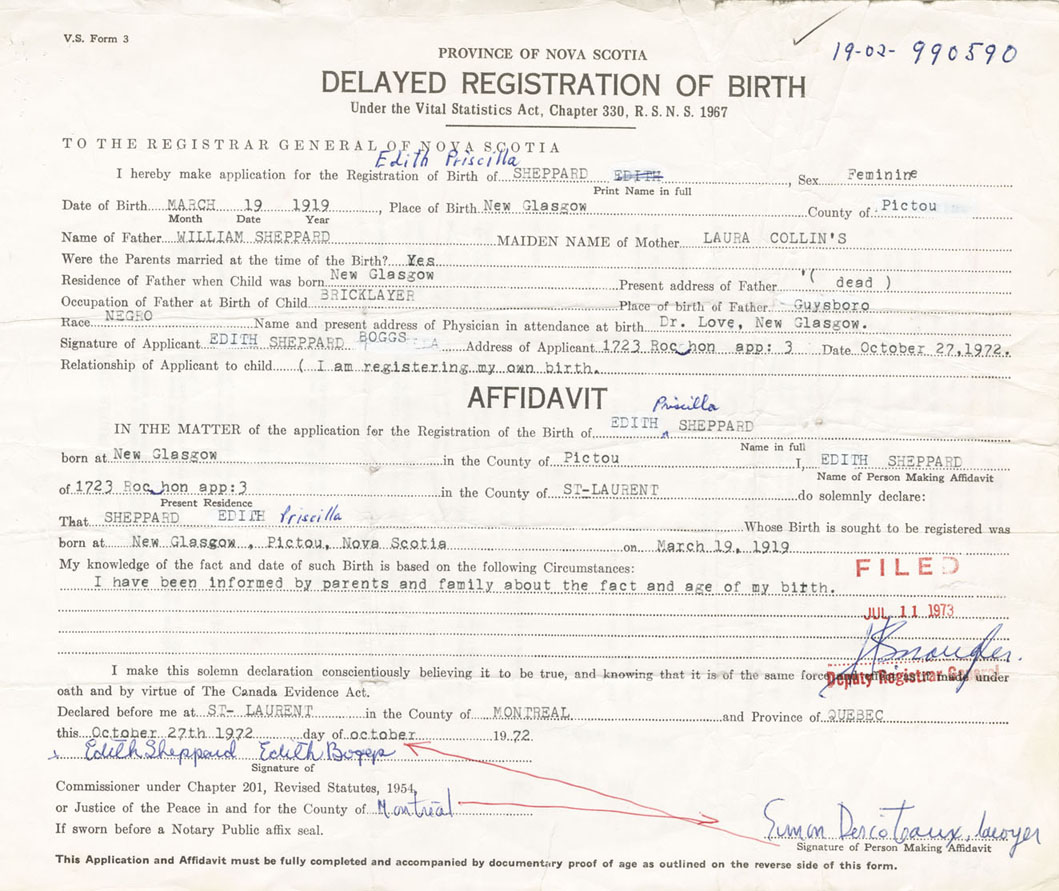 V.S. Form 3
19-02-990590
PROVINCE OF NOVA SCOTIA
DELAYED REGISTRATION OF BIRTH
Under the Vital Statistics Act, Chapter 330, R.S.N.S. 1967
TO THE REGISTRAR GENERAL OF NOVA SCOTIA
Edith Priscilla
I hereby make application for the Registration of Birth of SHEPPARD EDITH, Sex Feminine
Print Name in full
Date of Birth MARCH 19 1919, Place of Birth New Glasgow County of Pictou
Month Date Year
Name of Father WILLIAM SHEPPARD MAIDEN NAME of Mother LAURA COLLIN'S
Were the Parents married at the time of the Birth? Yes
Residence of Father when Child was born New Glasgow Present address of Father '( dead )
Occupation of Father at Birth of Child BRICKLAYER Place of birth of Father Guysboro
Race NEGRO Name and present address of Physician in attendance at birth Dr. Love, New Glasgow.
Signature of Applicant EDITH SHEPPARD BOGGS Address of Applicant 1723 Roc hon app: 3 Date October 27,1972.
Relationship of Applicant to child ( I am registering my own birth.
AFFIDAVIT
Priscilla
IN THE MATTER of the application for the Registration of the Birth of EDITH SHEPPARD
Name in full
born at New Glasgow in the County of Pictou I, EDITH SHEPPARD
Name of Person Making Affidavit
of 1723 Roc hon app:3 in the County of ST-LAURENT do solemnly declare:
Present Residence
That SHEPPARD EDITH Priscilla Whose Birth is sought to be registered was
born at New Glasgow, Pictou, Nova Scotia on March 19, 1919
My knowledge of the fact and date of such Birth is based on the following Circumstances:
FILED
I have been informed by parents and family about the fact and age of my birth.
JUL 11 1973
I make this solemn declaration conscientiously believing it to be true, and knowing that it is of the same force made under
Deputy Registrar
oath and by virtue of The Canada Evidence Act.
Declared before me at ST- LAURENT in the County of MONTREAL and Province of QUEBEC
this October 27th 1972 day of october 1972.
Edith Sheppard Edith Boggs
Signature of
Commissioner under Chapter 201, Revised Statutes, 1954,
or Justice of the Peace in and for the County of Montréal
Simon Descôteaux, lawyer
If sworn before a Notary Public affix seal.
Signature of Person Making Affidavit
This Application and Affidavit must be fully completed and accompanied by documentary proof of age as outlined on the reverse side of this form.